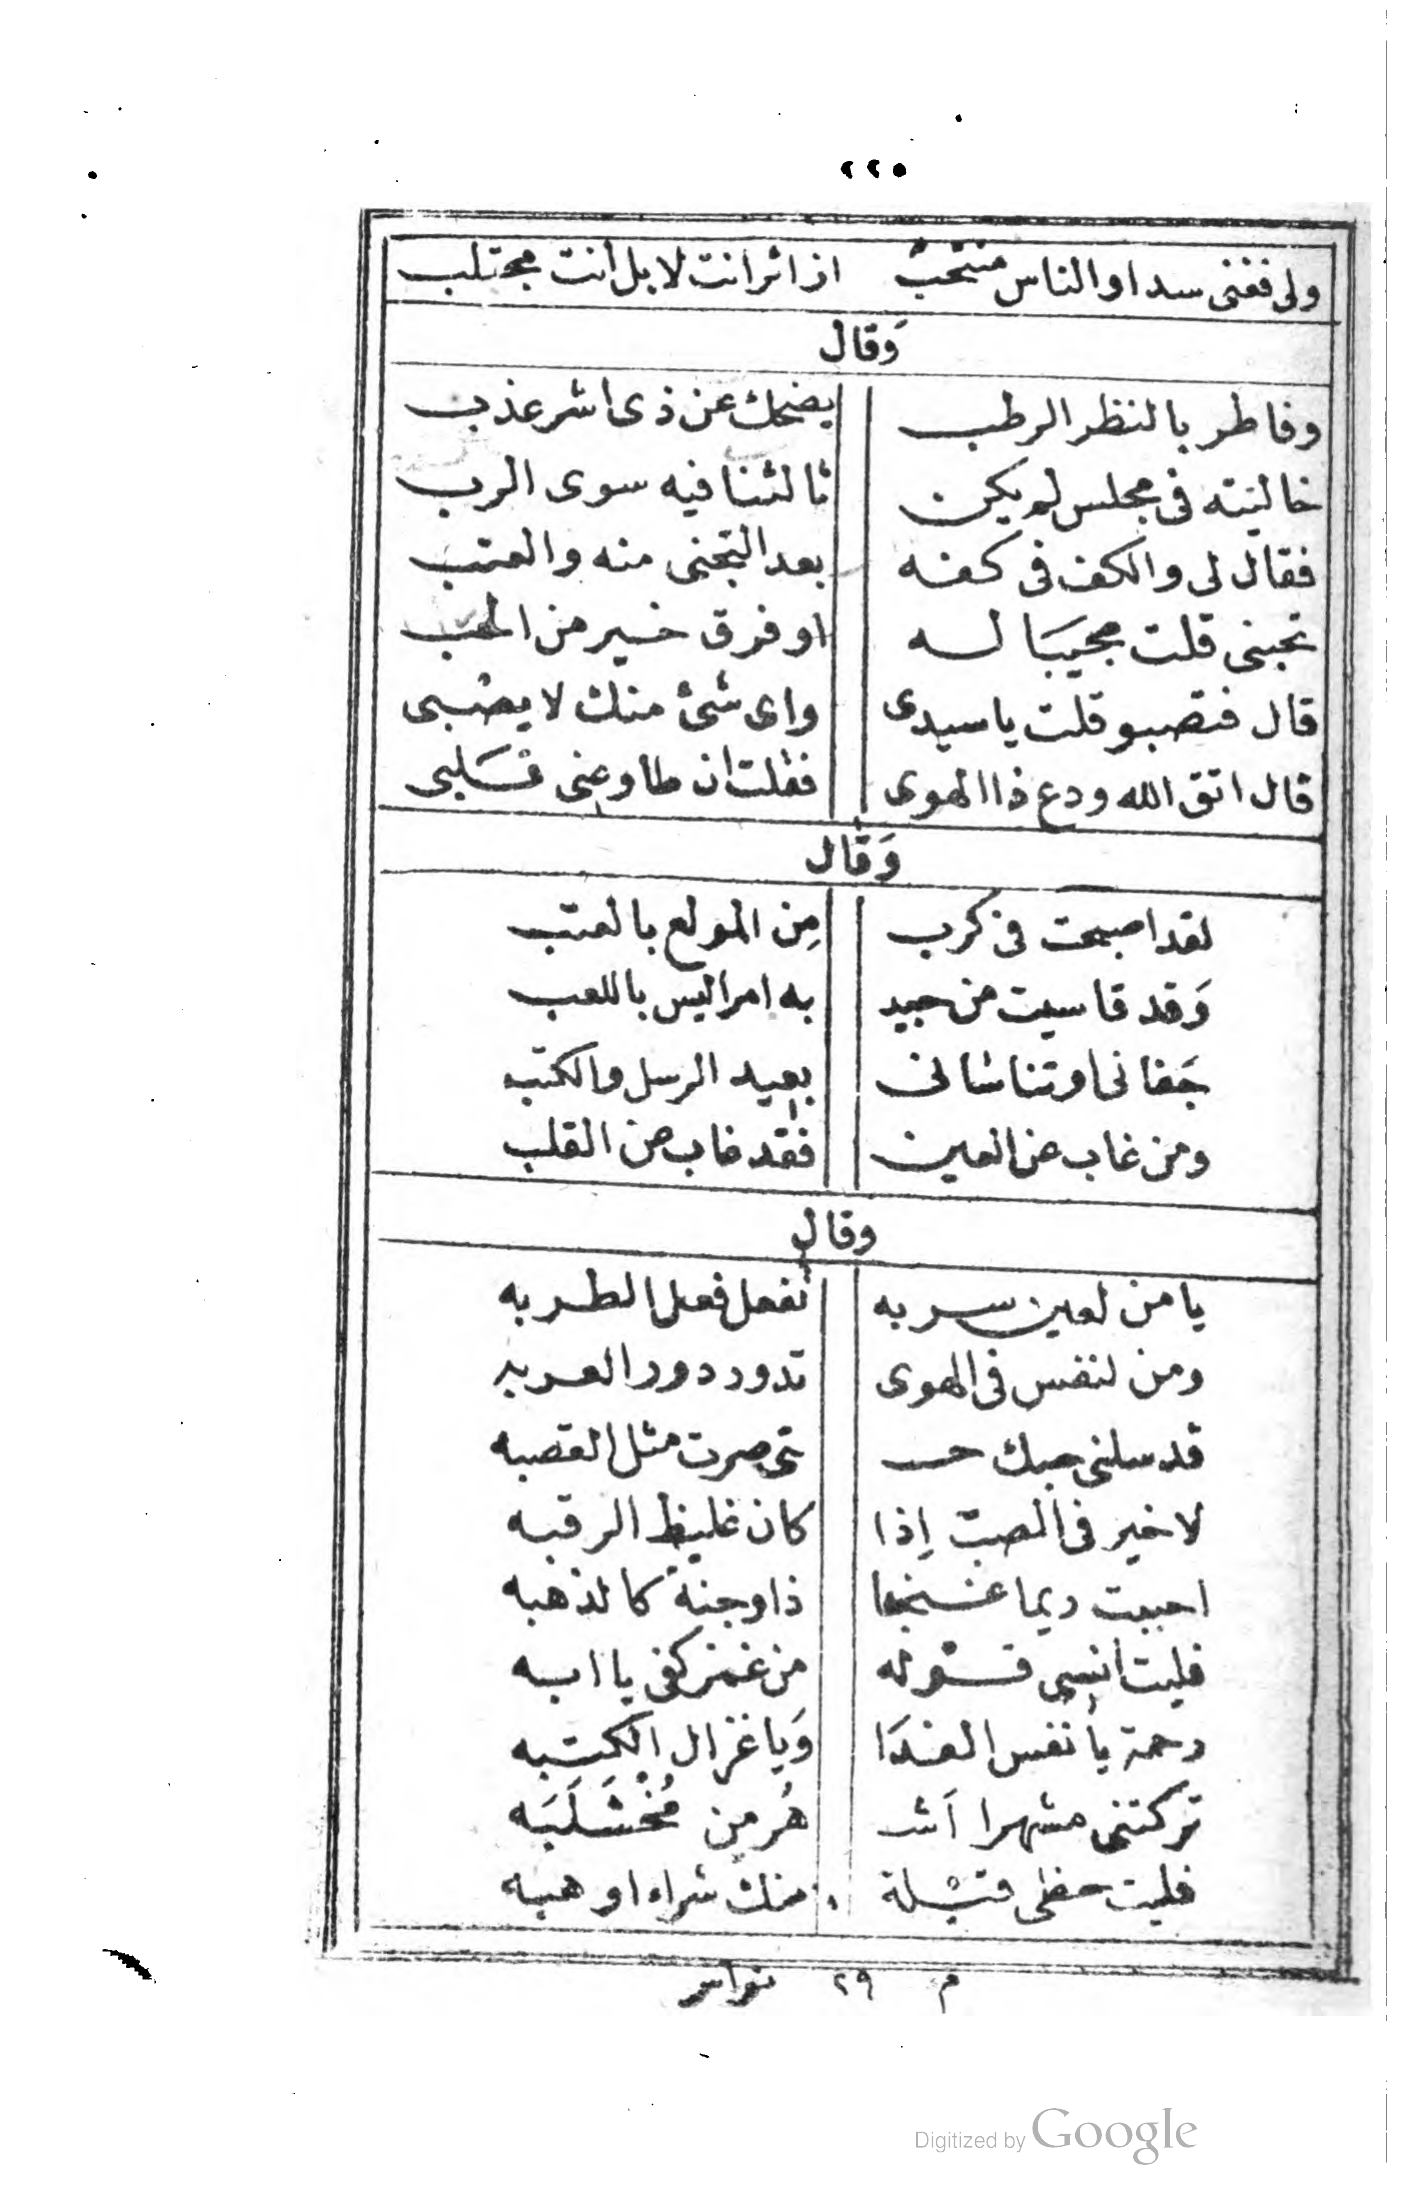 ٢٢٥
ولى ففنى سدا والناس منتحب ازائر انت لا بل أنت مجتلب
وَقال
وفاطر بالنظر الرطب يضحك عن ذى اشر عذب
خاليته فى مجلس لم يكن ثالثنا فيه سوى الرب
فقال لى والكف فى كفه بعد التجنى منه والعتب
تحبنى قلت مجيبا له او فرق خير من الحب
قال فتصبو قلت ياسيدى واى شئ منك لا يصبى
قال اتق الله ودع ذا الهوى فقلت ان طاوعنى قلبى
وَقال
لقد اصبحت فى كرب مِن المولع بالعتب
وَقد قاسيت من حبيه به امرا ليس باللعب
جَفانى او تناسانى بعيد الرسل والكتب
ومن غاب عن العين فقد غاب عن القلب
وقال
يا من لعين سربه تفعل فعل الطربه
ومن لنفس فى الهوى تدور دور العربه
قد سلنى حبك حـ تى صرت مثل القصبه
لا خير فى الصبّ إذا كان غليظ الرقبه
احببت ريما غنجا ذا وجنة كالذهبه
فليت أنسى قوله من غمز كفى يا ابه
رحمة يا نفس الفدَا وَيا غزال الكتبه
تركتنى مشهرا أشـ هُر مِن مُخْشَلَبَه
فليت حظى قبلة منك شراء او هبه
م ٢٩ نواس
Digitized by Google